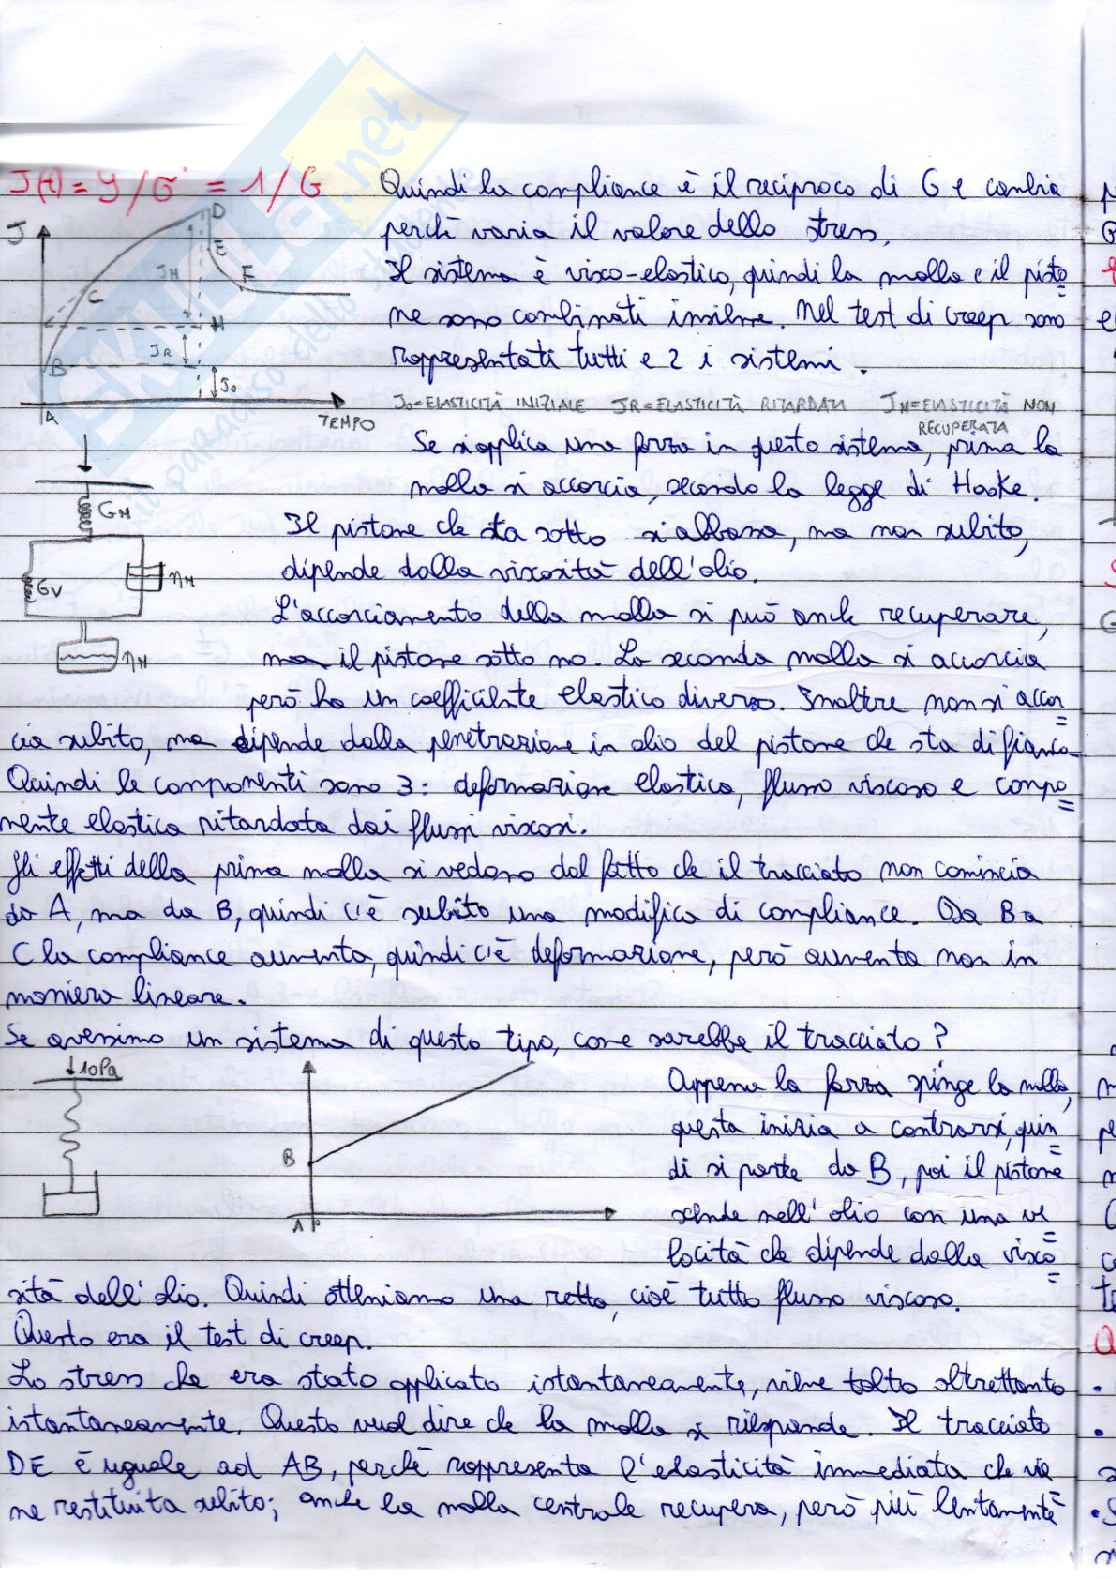 J(t) = γ/σ = 1/G
Quindi la compliance è il reciproco di G e cambia
perchè varia il valore dello stress.
Il sistema è visco-elastico, quindi la molla e il pisto
ne sono combinati insieme. Nel test di creep sono
rappresentati tutti e 2 i sistemi.
J D E F C JN N JR B J₀ A TEMPO
J₀=ELASTICITÀ INIZIALE JR=ELASTICITÀ RITARDATA JN=ELASTICITÀ NON
RECUPERATA
Se si applica una forza in questo sistema, prima la
molla si accorcia, secondo la legge di Hooke.
Il pistone che sta sotto si abbassa, ma non subito,
dipende dalla viscosità dell'olio.
L'accorciamento della molla si può anche recuperare,
ma il pistone sotto no. La seconda molla si accorcia
però ha un coefficiente elastico diverso. Inoltre non si accor
GN
GV ηN
ηN
cia subito, ma dipende dalla penetrazione in olio del pistone che sta di fianco
Quindi le componenti sono 3: deformazione elastica, flusso viscoso e compo
nente elastica ritardata dai flussi viscosi.
Gli effetti della prima molla si vedono dal fatto che il tracciato non comincia
da A, ma da B, quindi c'è subito una modifica di compliance. Da B a
C la compliance aumenta, quindi c'è deformazione, però aumenta non in
maniera lineare.
Se avessimo un sistema di questo tipo, come sarebbe il tracciato?
10Pa
B
A
Appena la forza spinge la molla,
questa inizia a contrarsi, quin
di si parte da B, poi il pistone
scende nell'olio con una ve
locità che dipende dalla visco
sità dell'olio. Quindi otteniamo una retta, cioè tutto flusso viscoso.
Questo era il test di creep.
Lo stress che era stato applicato istantaneamente, viene tolto altrettanto
istantaneamente. Questo vuol dire che la molla si riespande. Il tracciato
DE è uguale ad AB, perchè rappresenta l'elasticità immediata che vie
ne restituita subito; anche la molla centrale recupera, però più lentamente